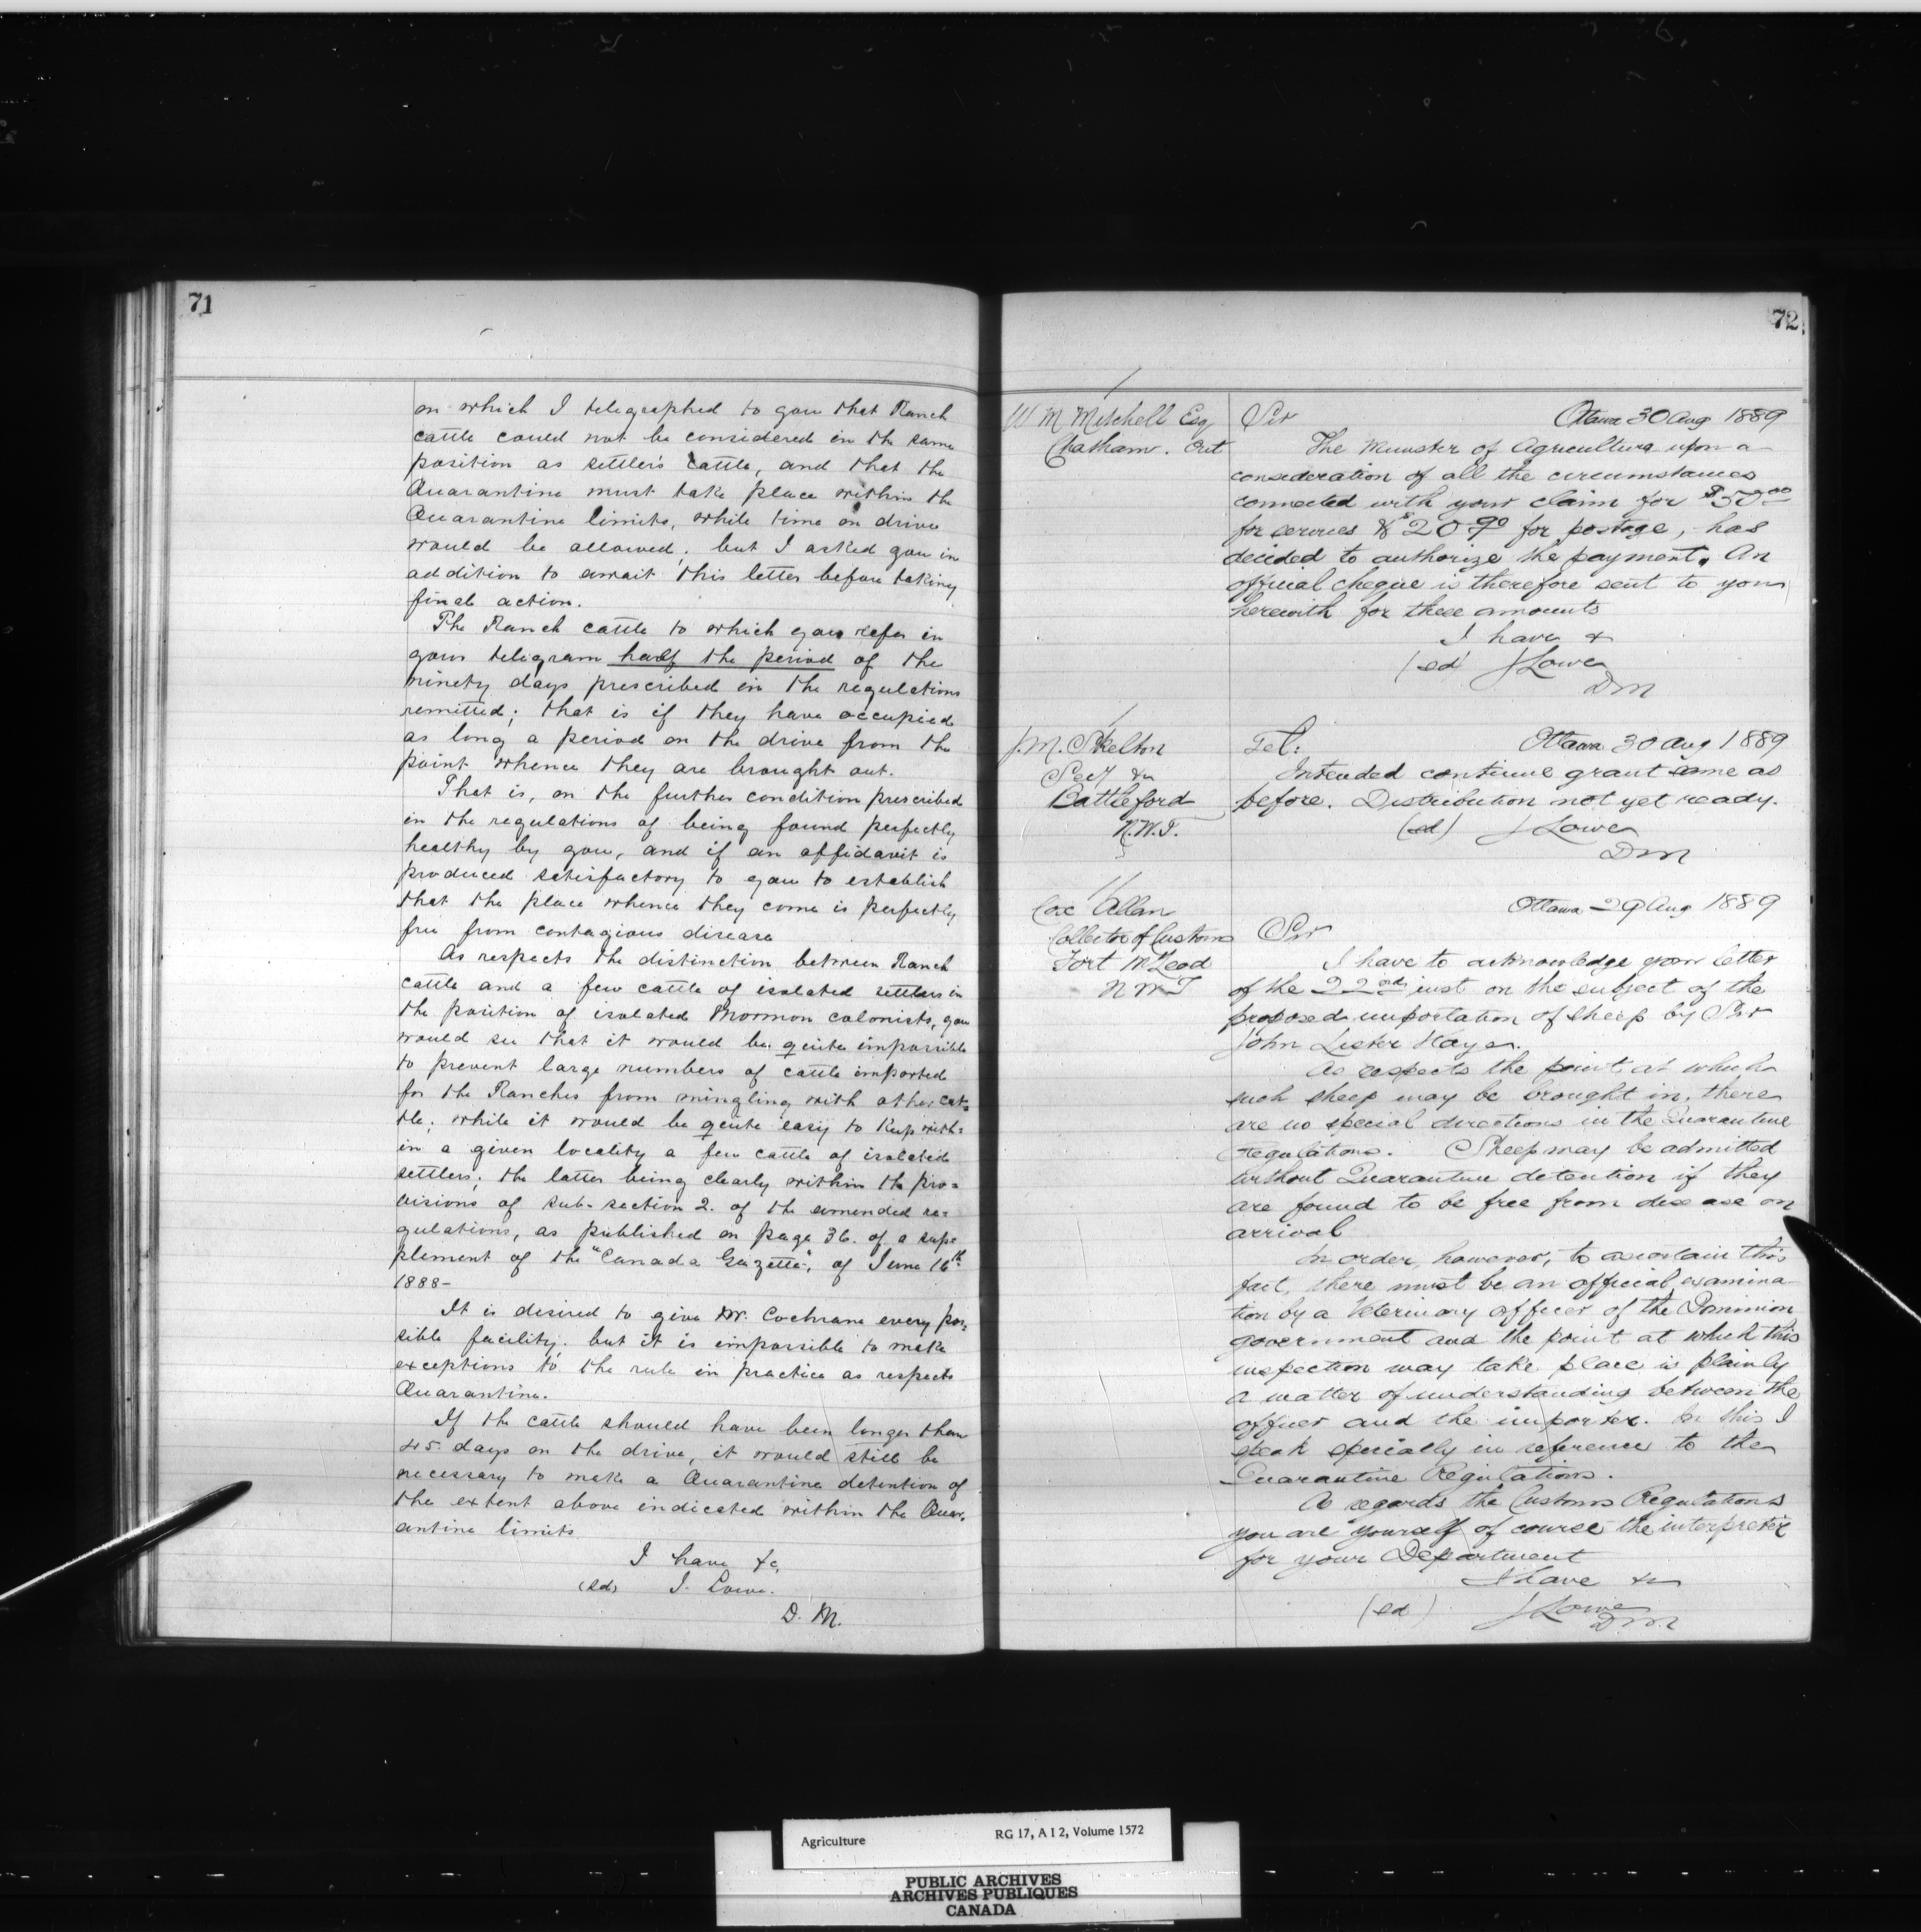 71
on which I telegraphed to you that Ranch
cattle could not be considered in the same
position as settler's cattle, and that the
Quarantine must take place within the
Quarantine limits, while time on drive
would be allowed; but I asked you in
addition to await this letter before taking
final action.
The Ranch cattle to which you refer in
your telegram half the period of the
ninety days prescribed in the regulations
remitted; that is if they have occupied
as long a period on the drive from the
point whence they are brought out.
That is, on the further condition prescribed
in the regulations of being found perfectly
healthy by you, and if an affidavit is
produced satisfactory to you to establish
that the place whence they come is perfectly
free from contagious disease
As respects the distinction between Ranch
cattle and a few cattle of isolated settlers in
the position of isolated Mormon colonists, you
would see that it would be quite impossible
to prevent large numbers of cattle imported
for the Ranches from mingling with other cat=
tle; while it would be quite easy to keep with=
in a given locality a few cattle of isolated
settlers; the latter being clearly within the pro=
visions of sub-section 2. of the amended re=
gulations, as published on page 36. of a supp
plement of the "Canada Gazette", of June 16th
1888-
It is desired to give Mr. Cochrane every pos=
sible facility; but it is impossible to make
exceptions to the rule in practice as respects
Quarantine.
If the cattle should have been longer than
45 days on the drive, it would still be
necessary to make a Quarantine detention of
the extent above indicated within the Quar=
antine limits
I have &c,
(sd) J. Lowe.
D. M.
72
W M Mitchell Esq
Chatham. Ont
Sir Ottawa 30 Aug 1889
The Minister of Agriculture upon a
consideration of all the circumstances
connected with your claim for $50 00
for services & $20 90 for postage, has
decided to authorize the payment. An
official cheque is therefore sent to you
herewith for these amounts
I have &
(sd) J Lowe
DM
J. M. Skelton
Secy &c
Battleford
N.W.T.
Tel: Ottawa 30 Aug 1889
Intended continue grant same as
before. Distribution not yet ready.
(sd) J Lowe
DM
Allan
Collector of Customs
Fort McLeod
N W T
Ottawa 29 Aug 1889
Sir
I have to acknowledge your letter
of the 22nd inst on the subject of the
proposed importation of sheep by Sir
John Lister Kaye.
As respects the point at which
such sheep may be brought in, there
are no special directions in the Quarantine
Regulations. Sheep may be admitted
without Quarantine detention if they
are found to be free from disease on
arrival
In order, however, to ascertain this
fact, there must be an official examina
tion by a Veterinary officer of the Dominion
government and the point at which this
inspection may take place is plainly
a matter of understanding between the
officer and the importer. In this I
speak specially in reference to the
Quarantine Regulations.
As regards the Customs Regulations
you are yourself of course the interpreter
for your Department
I have &c
(sd) J Lowe
DM
Agriculture RG 17, A I 2, Volume 1572
PUBLIC ARCHIVES
ARCHIVES PUBLIQUES
CANADA